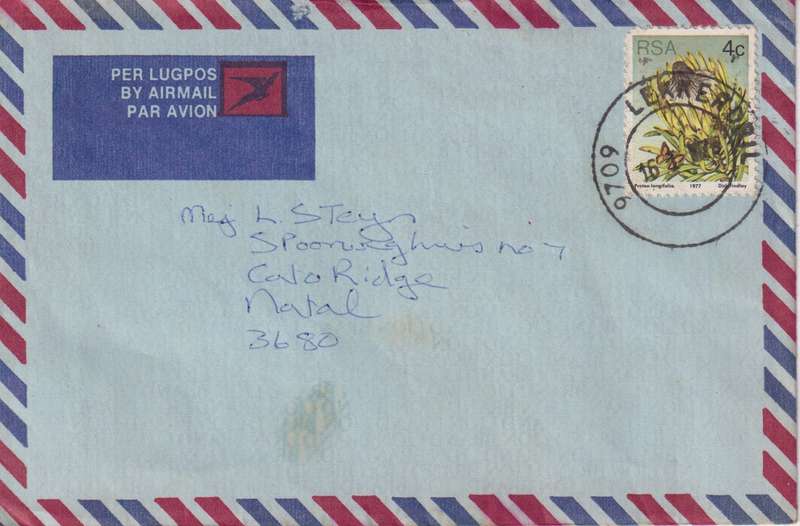 PER LUGPOS
BY AIRMAIL
PAR AVION
RSA 4c
Protea longifolia 1977 Dick Findlay
9709
16
Mej L. Steyn
Spoorweghuis no 7
Cato Ridge
Natal
3680